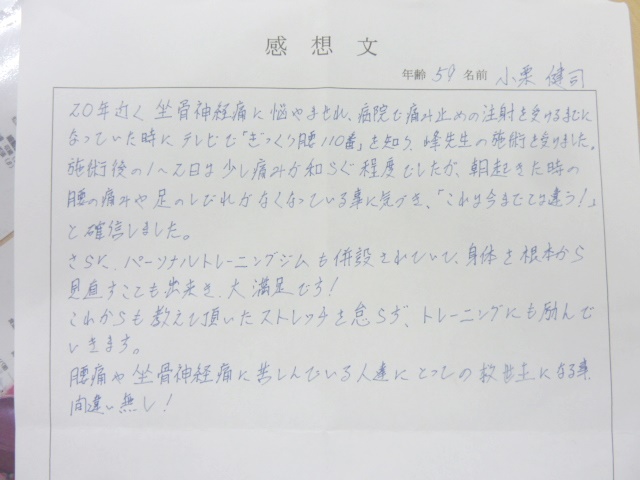 感想文
年齢 59 名前 小栗 健司
20年近く坐骨神経痛に悩やまされ、病院で痛み止めの注射を受けるまでに
なっていた時にテレビで「ぎっくり腰110番」を知り、峰先生の施術を受けました。
施術後の1〜2日は少し痛みが和らぐ程度でしたが、朝起きた時の
腰の痛みや足のしびれがなくなっている事に気づき、「これは今までとは違う!」
と確信しました。
さらに、パーソナルトレーニングジムも併設されていて、身体を根本から
見直すことも出来き、大満足です!
これからも教えて頂いたストレッチを怠らず、トレーニングにも励んで
いきます。
腰痛や坐骨神経痛に苦しんでいる人達にとっての救世主になる事
間違い無し!